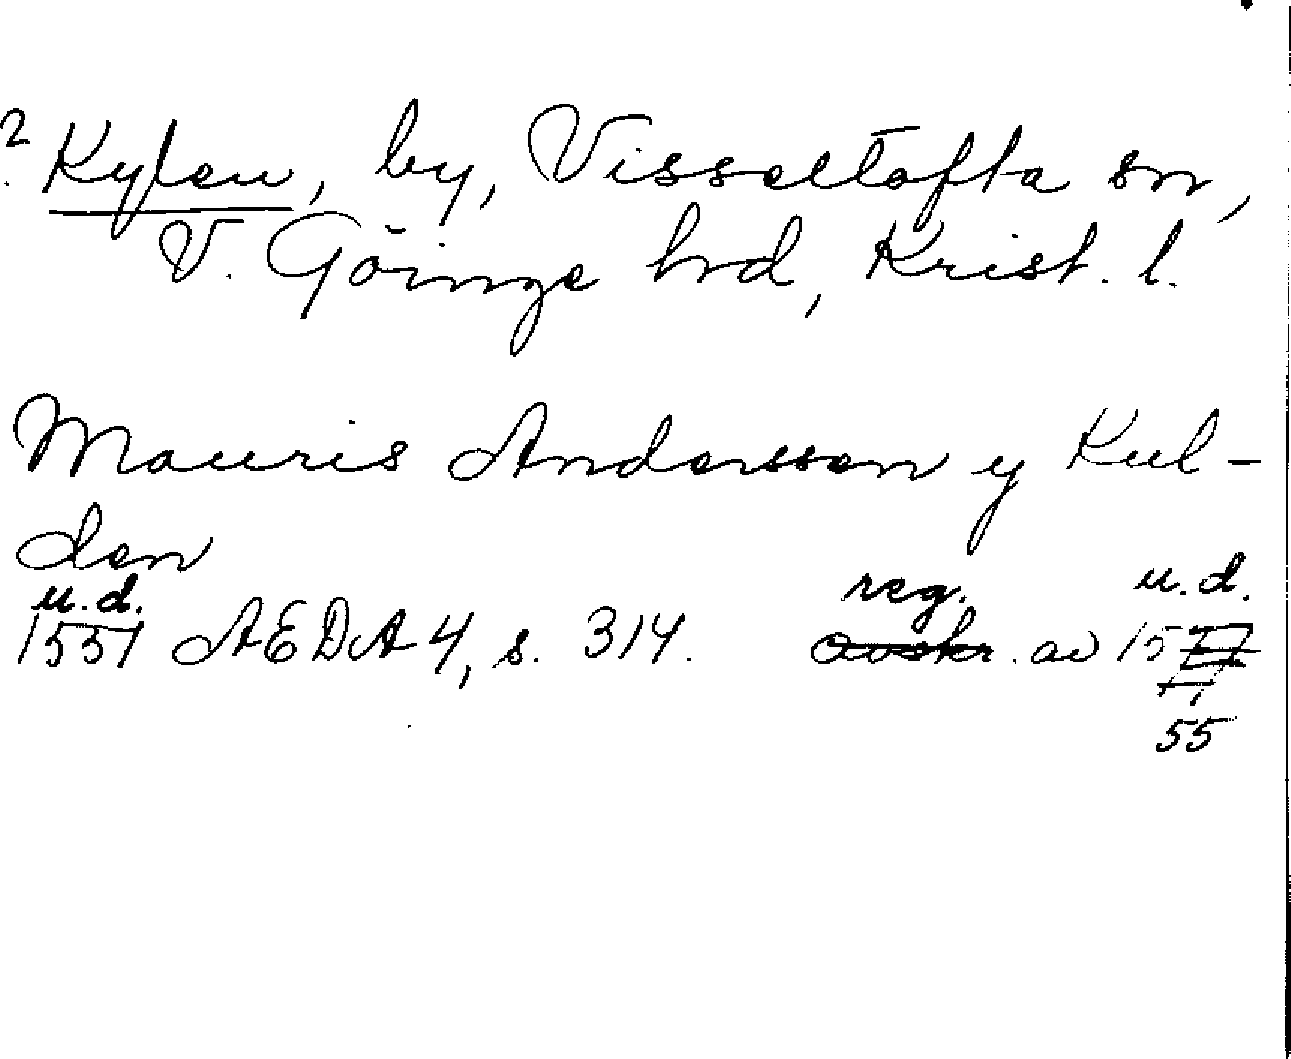 ? Kylen, by, Visseltofta sn,
V. Göinge hrd, Krist. l.
Mauris Andersson y Kul-
den
u.d. reg. u.d.
1551 AEDA 4, s. 314. avskr. av 15
55